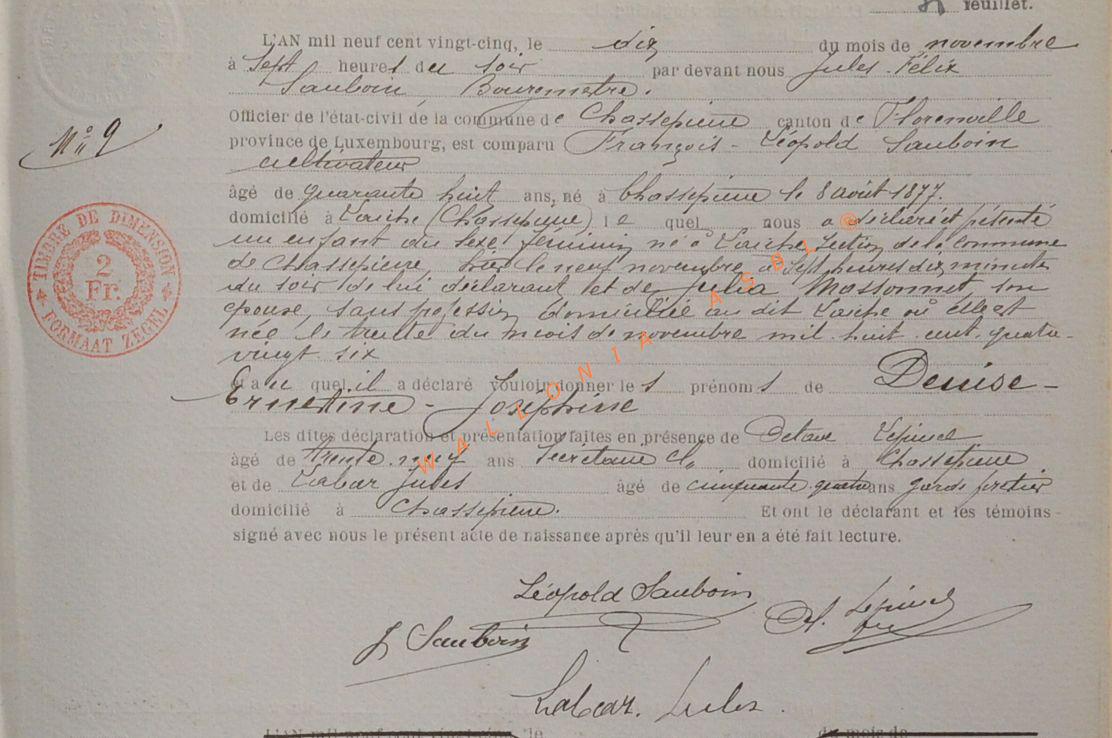 feuillet.
L'AN mil neuf cent vingt-cinq, le dix du mois de novembre
à sept heures du soir par devant nous Jules Félix
Sauboin, Bourgmestre.
Officier de l'état-civil de la commune de Chassepierre canton de Florenville
province de Luxembourg, est comparu François-Léopold Sauboin
cultivateur
âgé de quarante huit ans, né à Chassepierre le 8 août 1877.
domicilié à Laiche (Chassepierre) lequel nous a déclaré et présenté
un enfant du sexe féminin né à Laiche, section de la commune
de Chassepierre, hier le neuf novembre à sept heures dix minutes
du soir de lui déclarant et de Julia Massonnet son
épouse, sans profession domiciliée au dit Laiche où elle est
née le trente du mois de novembre mil huit cent quatre-
vingt six
et auquel il a déclaré vouloir donner les prénoms de Denise-
Ernestine-Joséphine
Les dites déclaration et présentation faites en présence de Octave Lepinel
âgé de trente neuf ans Secrétaire Cl domicilié à Chassepierre
et de Labar Jules âgé de cinquante quatre ans garde forestier
domicilié à Chassepierre. Et ont le déclarant et les témoins
signé avec nous le présent acte de naissance après qu'il leur en a été fait lecture.
Léopold Sauboin
J Sauboin
Labar. Jules.
N° 9
TIMBRE DE DIMENSION
2
Fr.
FORMAAT ZEGEL
WALLONIA ASBL ©
L'AN mil neuf cent vingt-cinq, le du mois de